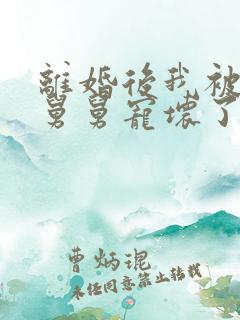 離婚後我被
舅舅寵壞了
曹炳琨
未任同意禁止轉載